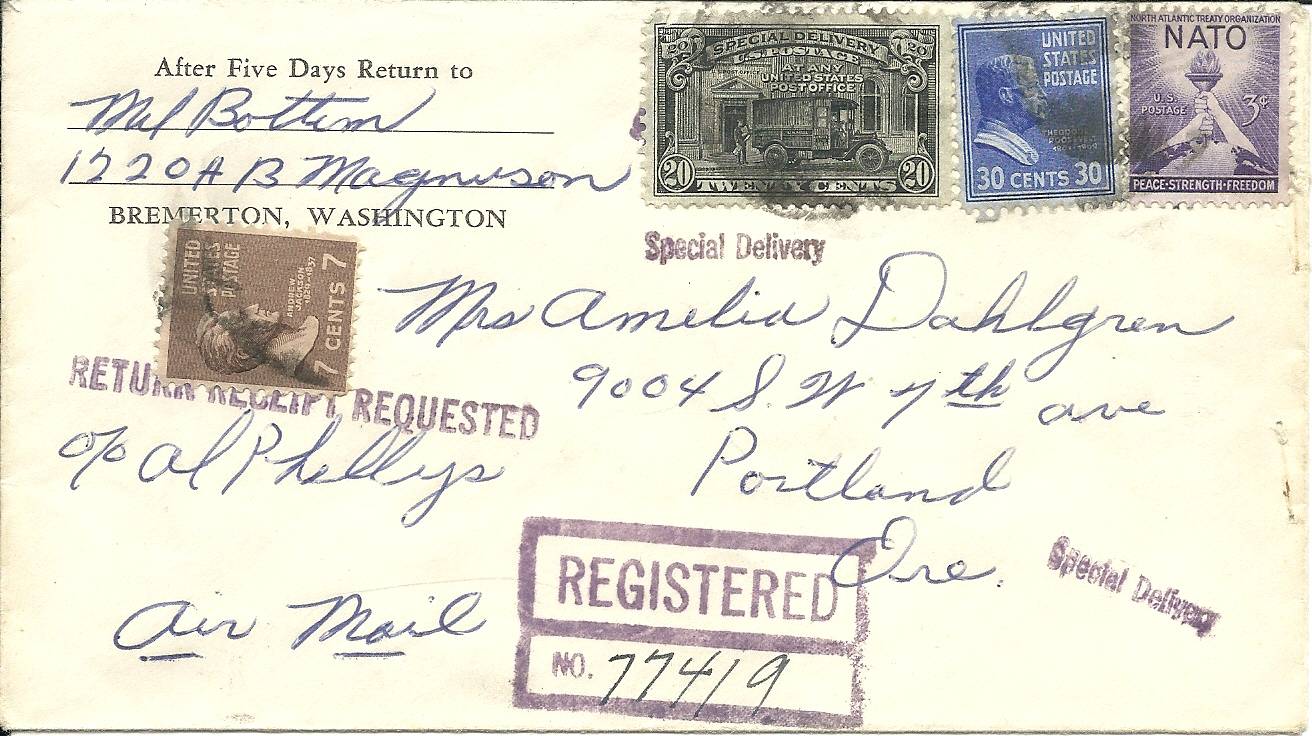 After Five Days Return to
Mel Bottem
1220A B Magnuson
BREMERTON, WASHINGTON
20 SPECIAL DELIVERY 20
U.S. POSTAGE
AT ANY
UNITED STATES
POST OFFICE
20 TWENTY CENTS 20
UNITED
STATES
POSTAGE
THEODORE
ROOSEVELT
30 CENTS 30
NORTH ATLANTIC TREATY ORGANIZATION
NATO
U.S.
POSTAGE
3¢
PEACE·STRENGTH·FREEDOM
Special Delivery
UNITED
STATES
POSTAGE
ANDREW
JACKSON
1829-1837
7 CENTS 7
Mrs Amelia Dahlgren
9004 S.W 7th ave
Portland
Ore.
RETURN RECEIPT REQUESTED
c/o Al Phellys
Air Mail
REGISTERED
NO. 77419
Special Delivery